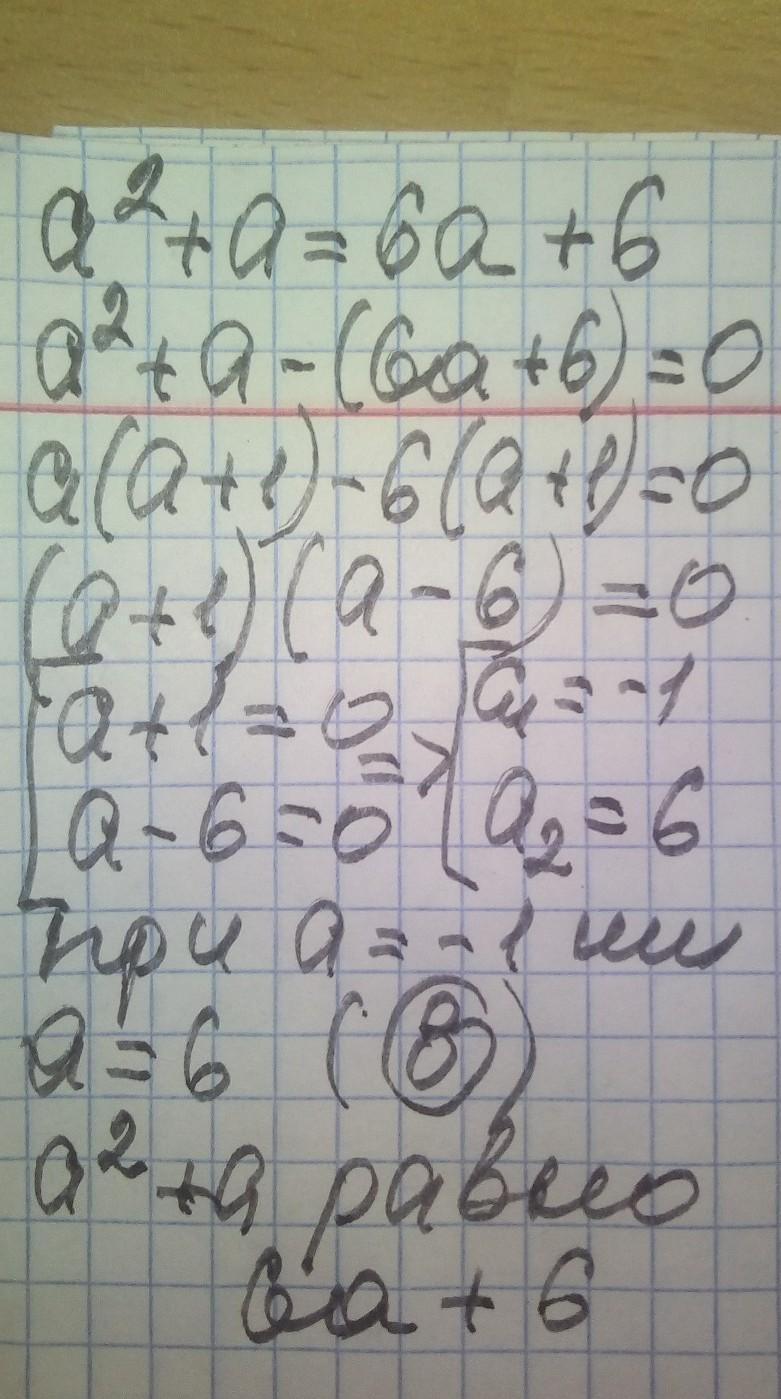 a² + a = 6a + 6
a² + a - (6a + 6) = 0
a(a + 1) - 6(a + 1) = 0
(a + 1)(a - 6) = 0
[a + 1 = 0 => [a₁ = -1
[a - 6 = 0 [a₂ = 6
при a = -1 или
a = 6 (В)
a² + a равно
6a + 6